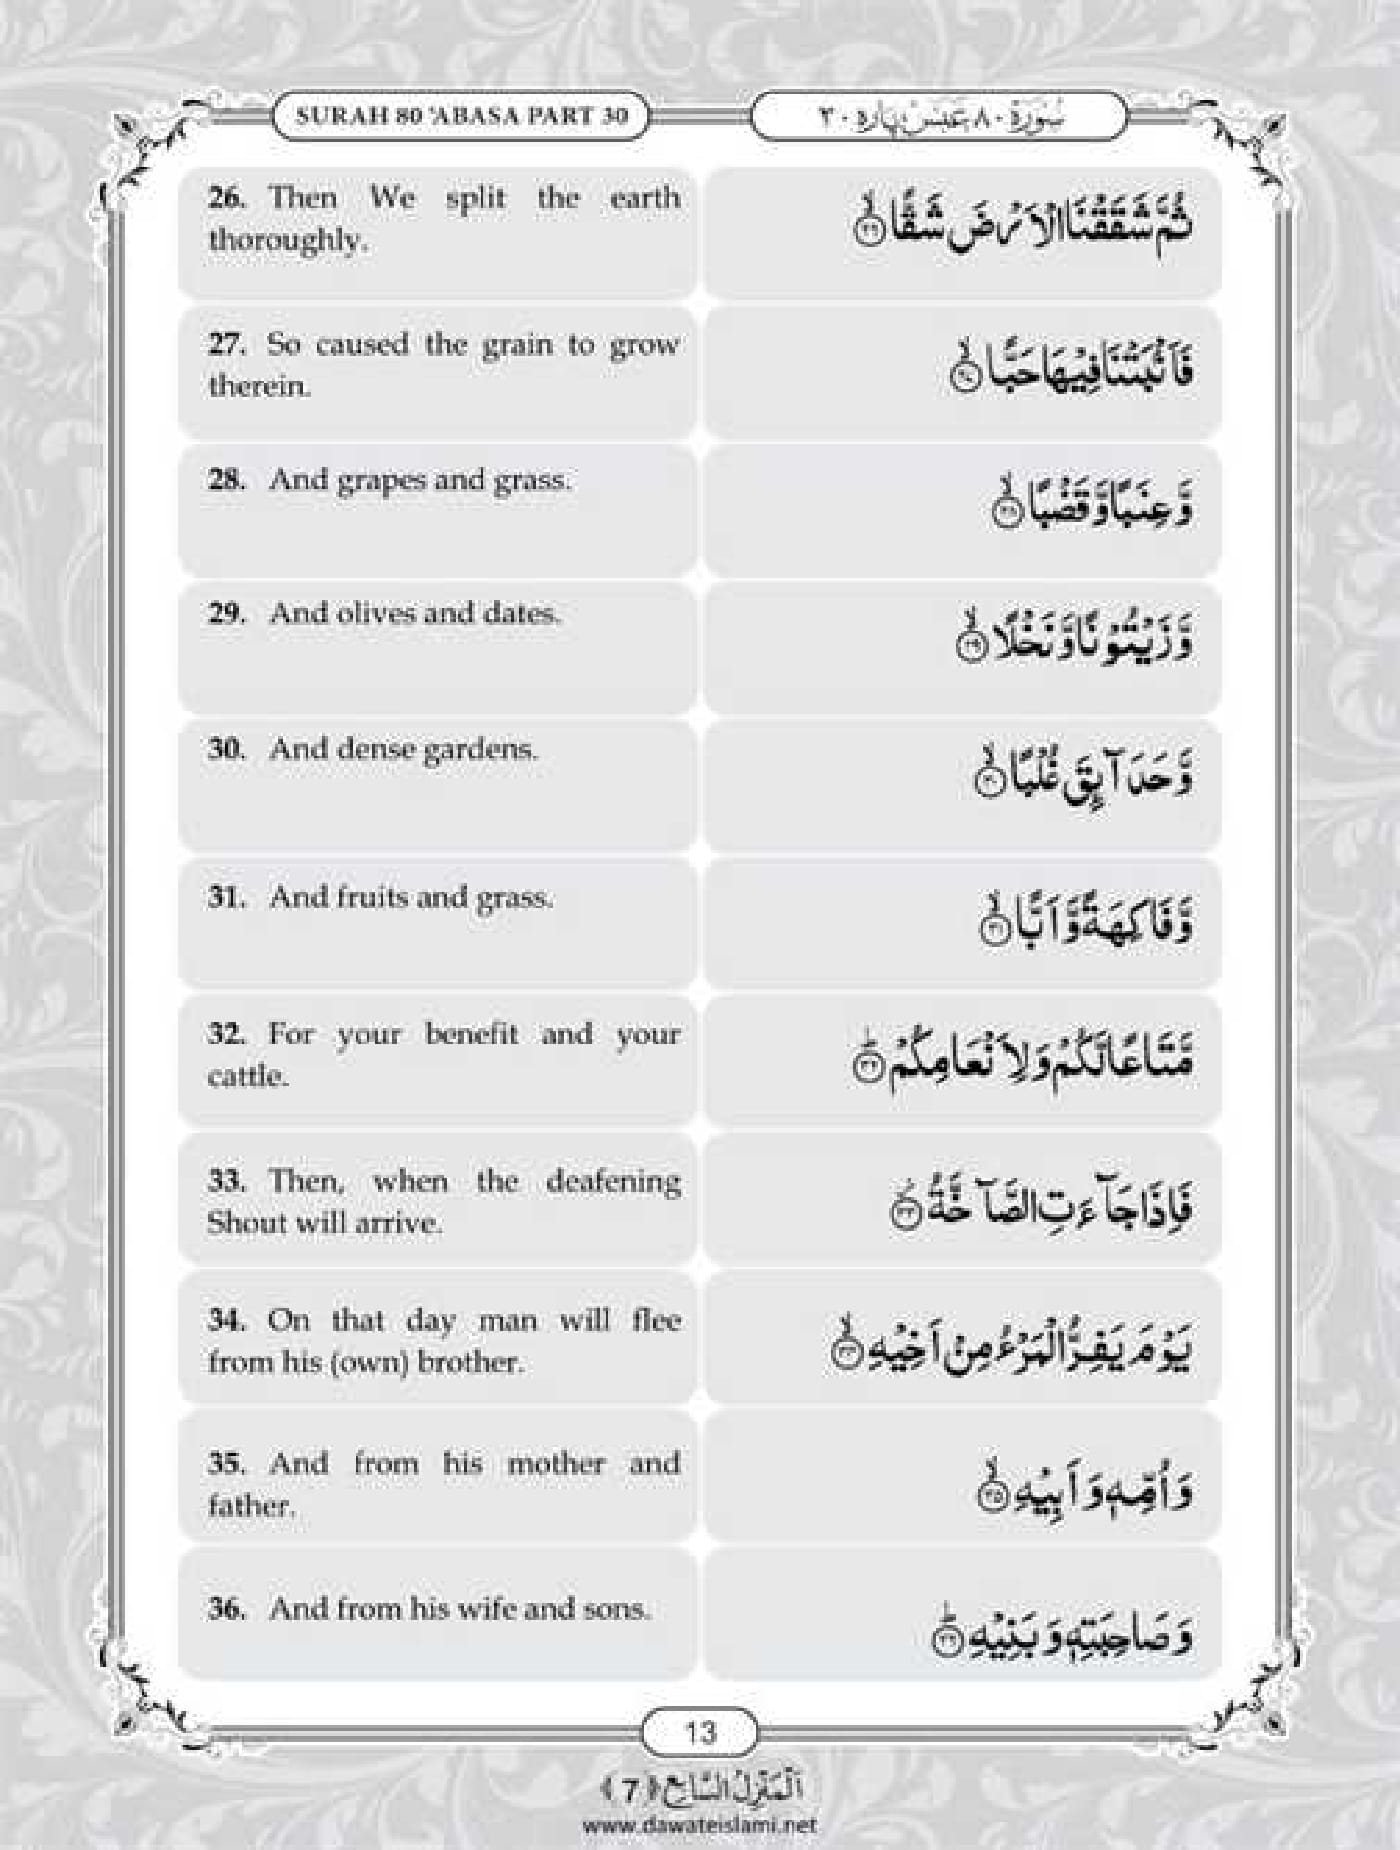 SURAH 80 'ABASA PART 30
سُوْرَۃ ٨٠ عَبَسَ، پارہ ٣٠
26. Then We split the earth
thoroughly.
ثُمَّ شَقَقْنَا الْاَرْضَ شَقًّا ۙ﴿۲۶﴾
27. So caused the grain to grow
therein.
فَاَنْۢبَتْنَا فِیْهَا حَبًّا ۙ﴿۲۷﴾
28. And grapes and grass.
وَّ عِنَبًا وَّ قَضْبًا ۙ﴿۲۸﴾
29. And olives and dates.
وَّ زَیْتُوْنًا وَّ نَخْلًا ۙ﴿۲۹﴾
30. And dense gardens.
وَّ حَدَآىِٕقَ غُلْبًا ۙ﴿۳۰﴾
31. And fruits and grass.
وَّ فَاكِهَةً وَّ اَبًّا ۙ﴿۳۱﴾
32. For your benefit and your
cattle.
مَّتَاعًا لَّكُمْ وَ لِاَنْعَامِكُمْ ؕ﴿۳۲﴾
33. Then, when the deafening
Shout will arrive.
فَاِذَا جَآءَتِ الصَّآخَّةُ ۫﴿۳۳﴾
34. On that day man will flee
from his (own) brother.
یَوْمَ یَفِرُّ الْمَرْءُ مِنْ اَخِیْهِ ۙ﴿۳۴﴾
35. And from his mother and
father.
وَ اُمِّهٖ وَ اَبِیْهِ ۙ﴿۳۵﴾
36. And from his wife and sons.
وَ صَاحِبَتِهٖ وَ بَنِیْهِ ؕ﴿۳۶﴾
13
اَلْمَنْزِلُ السَّابِع ﴿7﴾
www.dawateislami.net